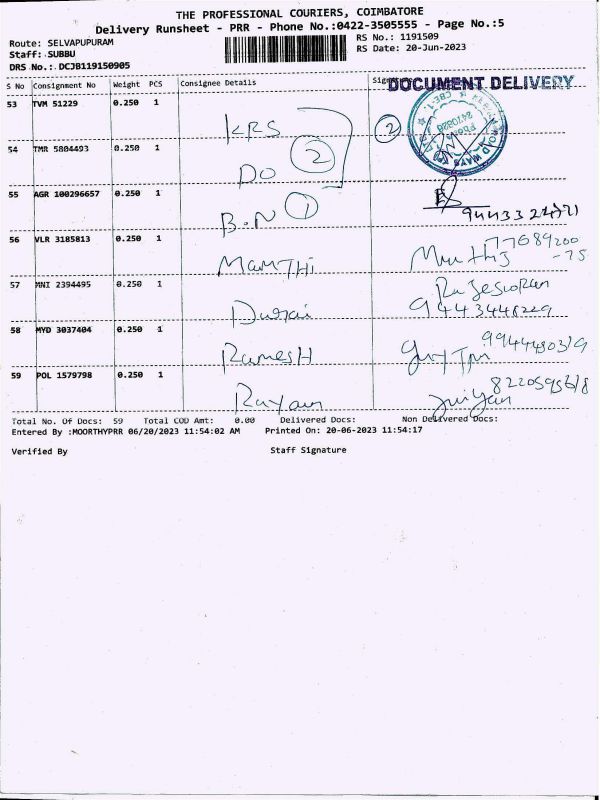 THE PROFESSIONAL COURIERS, COIMBATORE
Delivery Runsheet - PRR - Phone No.:0422-3505555 - Page No.:5
Route: SELVAPUPURAM RS No.: 1191509
Staff: SUBBU RS Date: 20-Jun-2023
DRS No.: DCJB119150905
S No Consignment No Weight PCS Consignee Details
DOCUMENT DELIVERY
53 TVM 51229 0.250 1 KRS 2
54 TMR 5804493 0.250 1 DO 2
55 AGR 100296657 0.250 1 B.N 1
56 VLR 3185813 0.250 1 MamTHi
57 MNI 2394495 0.250 1 Durai 9443448229
58 MYD 3037404 0.250 1 RameSH
59 POL 1579798 0.250 1 Rayan
Total No. Of Docs: 59 Total COD Amt: 0.00 Delivered Docs: Non Delivered Docs:
Entered By :MOORTHYPRR 06/20/2023 11:54:02 AM Printed On: 20-06-2023 11:54:17
Verified By Staff Signature